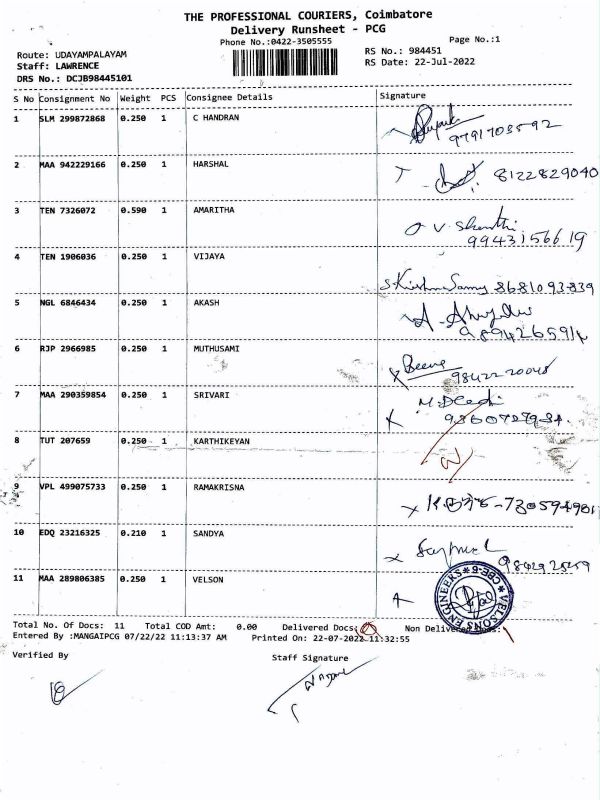 THE PROFESSIONAL COURIERS, Coimbatore
Delivery Runsheet - PCG
Phone No.:0422-3505555
Page No.:1
Route: UDAYAMPALAYAM
RS No.: 984451
Staff: LAWRENCE
RS Date: 22-Jul-2022
DRS No.: DCJB98445101
S No Consignment No Weight PCS Consignee Details Signature
1 SLM 299872868 0.250 1 C HANDRAN
9791703592
2 MAA 942229166 0.250 1 HARSHAL 8122829040
3 TEN 7326072 0.590 1 AMARITHA V. Shanthi
9943156619
4 TEN 1906036 0.250 1 VIJAYA
8681093839
5 NGL 6846434 0.250 1 AKASH
6 RJP 2966985 0.250 1 MUTHUSAMI
9842220048
7 MAA 290359854 0.250 1 SRIVARI
8 TUT 207659 0.250 1 KARTHIKEYAN
9 VPL 499075733 0.250 1 RAMAKRISNA
10 EDQ 23216325 0.210 1 SANDYA
11 MAA 289806385 0.250 1 VELSON
VELSONS ENGINEERS CBE-6
Total No. Of Docs: 11 Total COD Amt: 0.00 Delivered Docs: Non Delivered Docs:
Entered By :MANGAIPCG 07/22/22 11:13:37 AM Printed On: 22-07-2022 11:32:55
Verified By
Staff Signature